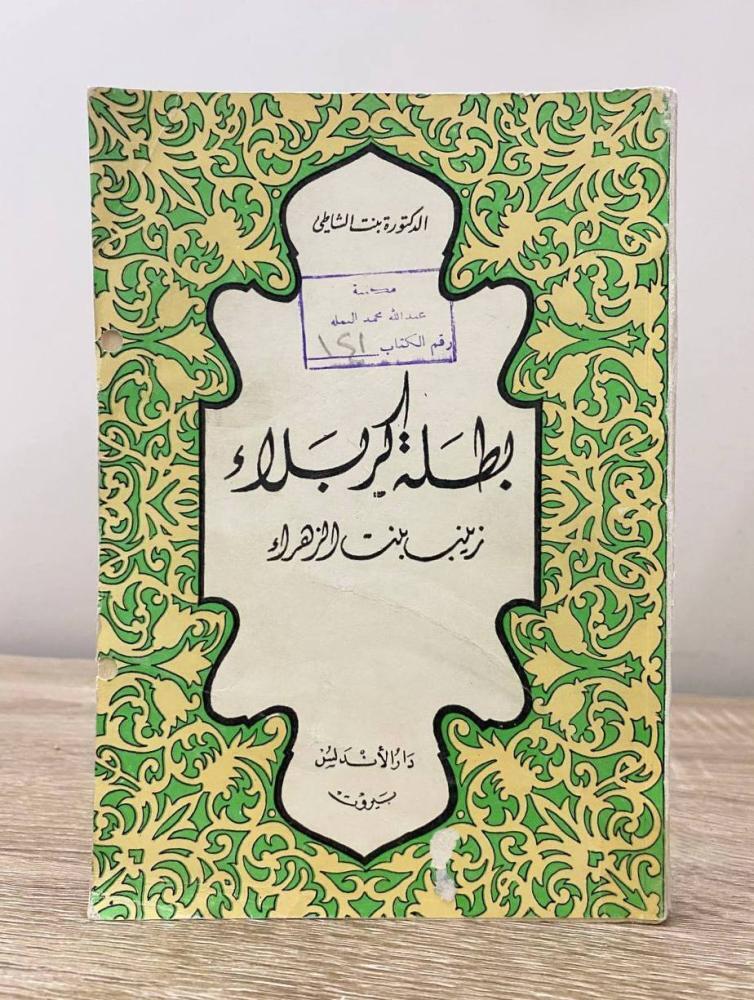 الدكتورة بنت الشاطئ
مكتبة
عبدالله محمد
رقم الكتاب ١٤١
بطلة كربلاء
زينب بنت الزهراء
دار الأندلس
بيروت